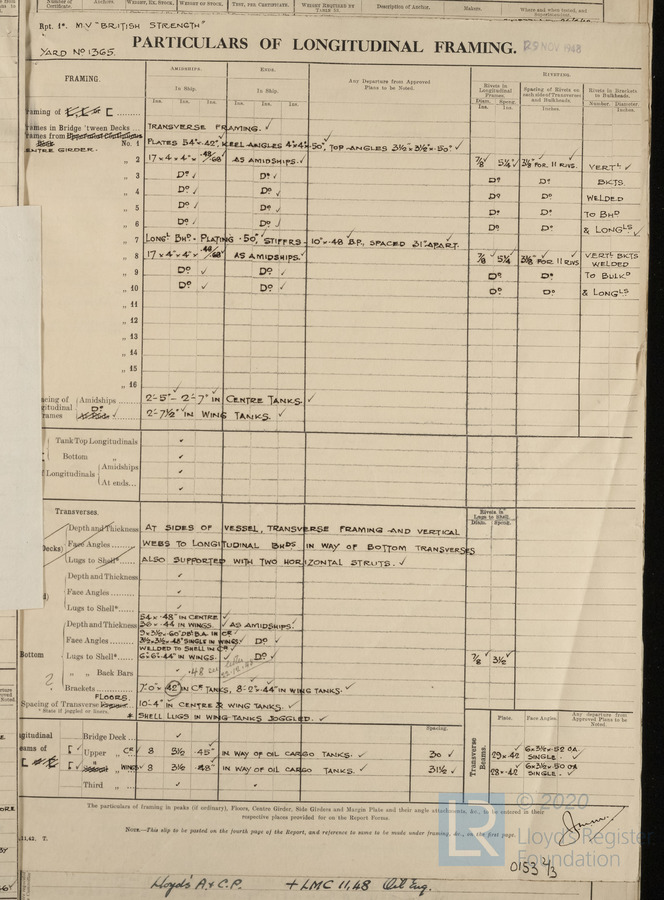 Number of Certificate.
Anchors.
Weight, Ex. Stock
Weight of Stock.
Test, per Certificate.
Weight Required by Table 22.
Description of Anchor.
Makers.
Where and when tested, and
Rpt. 1*. M.V "BRITISH STRENGTH"
YARD No 1365.
PARTICULARS OF LONGITUDINAL FRAMING.
29 NOV 1948
FRAMING.
AMIDSHIPS.
ENDS.
Any Departure from Approved Plans to be Noted.
RIVETING.
In Ship.
In Ship.
Rivets in Longitudinal Frames.
Spacing of Rivets on each side of Transverses and Bulkheads.
Rivets in Brackets to Bulkheads.
Ins. Ins. Ins. Ins. Ins. Ins.
Diam. Spcng. Inches. Number. Diameter
Ins. Ins. Inches.
raming of
rames in Bridge 'tween Decks ... TRANSVERSE FRAMING. ✓
rames from
CENTRE GIRDER. No. 1 PLATES 54"×.42", KEEL ANGLES 4"×4"×.50", TOP ANGLES 3½"×3½"×.50" ✓
„ 2 17 × 4 × 4" × .48/.68 AS AMIDSHIPS. ✓ 7/8 5¼ 3⅛" FOR 11 RIVS. VERTL ✓
„ 3 Do ✓ Do ✓ Do Do BKTS.
„ 4 Do ✓ Do ✓ Do Do WELDED
„ 5 Do ✓ Do ✓ Do Do TO BHD
„ 6 Do ✓ Do ✓ Do Do & LONGLS ✓
„ 7 LONGL BHD. PLATING .50", STIFFRS. 10"×.48 B.P., SPACED 31" APART.
„ 8 17 × 4" × 4" × .48/.68" AS AMIDSHIPS. ✓ 7/8 5¼ 3⅛" FOR 11 RIVS VERTL BKTS WELDED
„ 9 Do ✓ Do ✓ Do Do TO BULKD
„ 10 Do ✓ Do ✓ Do Do & LONGLS
„ 11
„ 12
„ 13
„ 14
„ 15
„ 16
acing of Amidships 2'-5" - 2'-7" IN CENTRE TANKS. ✓
gitudinal Do
rames ✓ 2'-7½" IN WING TANKS. ✓
Tank Top Longitudinals ✓
Bottom „ ✓
f Longitudinals Amidships ✓
At ends... ✓
Transverses.
Rivets in Lugs to Shell.
Diam. Spcng.
Depth and Thickness AT SIDES OF VESSEL, TRANSVERSE FRAMING AND VERTICAL
Decks) Face Angles ........ WEBS TO LONGITUDINAL BHDS IN WAY OF BOTTOM TRANSVERSES
Lugs to Shell* ...... ALSO SUPPORTED WITH TWO HORIZONTAL STRUTS. ✓
Depth and Thickness ✓
Face Angles ........ ✓
Lugs to Shell* ...... ✓
54 × .48" IN CENTRE
Depth and Thickness 36 × .44 IN WINGS. ✓ AS AMIDSHIPS. ✓
9 × 3½ × .60" DBL B.A. IN CR
Face Angles ........ 3½ × 3½ × .48" SINGLE IN WINGS. ✓ Do ✓
WELDED TO SHELL IN CR ✓
Bottom Lugs to Shell* ...... 6" × 6" × .44" IN WINGS. ✓ Do ✓ 7/8 3½
„ „ Back Bars
Brackets ........ 7'-0" × .42" IN CR TANKS, 8'-2" × .44" IN WING TANKS. ✓
FLOORS,
Spacing of Transverse 10'-4" IN CENTRE & WING TANKS. ✓
* State if joggled or liners. * SHELL LUGS IN WING TANKS JOGGLED. ✓
Spacing.
Plate. Face Angles. Any departure from Approved Plans to be Noted.
gitudinal Bridge Deck ... ✓
eams of Upper „ CR ✓ 8 3½ .45" IN WAY OF OIL CARGO TANKS. ✓ 30 ✓
„ WINGS ✓ 8 3½ .48" IN WAY OF OIL CARGO TANKS. ✓ 31½ ✓
Third „ ✓
Transverse Beams.
29 × .42 6 × 3½ × .52 OA SINGLE. ✓
28 × .42 6 × 3½ × .50 OA SINGLE. ✓
The particulars of framing in peaks (if ordinary), Floors, Centre Girder, Side Girders and Margin Plate and their angle attachments, &c., to be entered in their
respective places provided for on the Report Forms.
NOTE.—This slip to be pasted on the fourth page of the Report, and reference to same to be made under framing, &c., on the first page.
11,42. T.
LR
© 2020
Lloyd's Register
Foundation
0153 4/3
Lloyd's A & C.P. + LMC 11,48 Oil Eng.